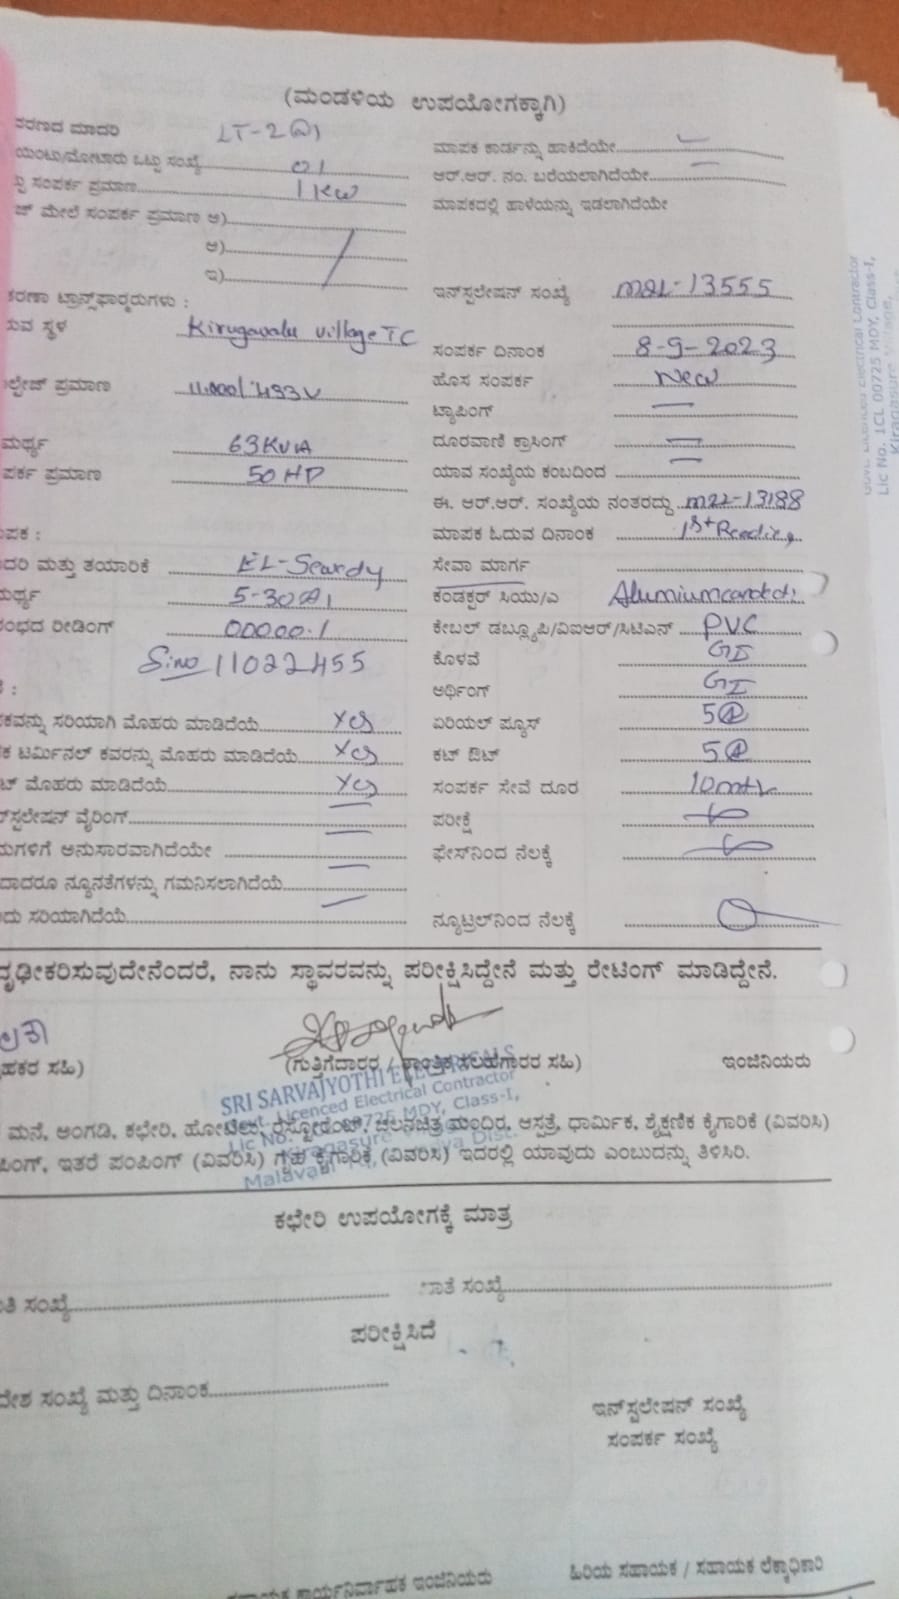 (ಮಂಡಳಿಯ ಉಪಯೋಗಕ್ಕಾಗಿ)
ವರಣದ ಮಾದರಿ LT-2
ಮಾಪಕ ಕಾರ್ಡನ್ನು ಹಾಕಿದೆಯೇ
ಯಿಂಟು/ಮೋಟಾರು ಒಟ್ಟು ಸಂಖ್ಯೆ 01
ಆರ್.ಆರ್. ನಂ. ಬರೆಯಲಾಗಿದೆಯೇ
ಸಂಪರ್ಕ ಪ್ರಮಾಣ 1 KW
ಮಾಪಕದಲ್ಲಿ ಹಾಳೆಯನ್ನು ಇಡಲಾಗಿದೆಯೇ
ಜ್ ಮೇಲೆ ಸಂಪರ್ಕ ಪ್ರಮಾಣ ಅ)
ಆ)
ಇ)
ಇನ್‌ಸ್ಟಲೇಷನ್ ಸಂಖ್ಯೆ 13555
ಕರಣಾ ಟ್ರಾನ್ಸ್‌ಫಾರ್ಮರುಗಳು :
ರುವ ಸ್ಥಳ Kirugavalu village TC
ಸಂಪರ್ಕ ದಿನಾಂಕ 8-9-2023
ಲ್ಟೇಜ್ ಪ್ರಮಾಣ 11.000/433V
ಹೊಸ ಸಂಪರ್ಕ New
ಟ್ಯಾಪಿಂಗ್
ಮರ್ಥ್ಯ 63KVA
ದೂರವಾಣಿ ಕ್ರಾಸಿಂಗ್
ಪರ್ಕ ಪ್ರಮಾಣ 50 HP
ಯಾವ ಸಂಖ್ಯೆಯ ಕಂಬದಿಂದ
ಈ. ಆರ್.ಆರ್. ಸಂಖ್ಯೆಯ ನಂತರದ್ದು 13188
ಪಕ :
ಮಾಪಕ ಓದುವ ದಿನಾಂಕ 1st Reading
ದರಿ ಮತ್ತು ತಯಾರಿಕೆ
ಸೇವಾ ಮಾರ್ಗ
ಮರ್ಥ್ಯ 5-30A
ಕಂಡಕ್ಟರ್ ಸಿಯು/ಎ
ರಂಭದ ರೀಡಿಂಗ್ 00000.1
ಕೇಬಲ್ ಡಬ್ಲ್ಯೂಪಿ/ವಿಐಆರ್/ಸಿಟಿಎನ್ PVC
Sl.no 11022455
ಕೊಳವೆ GI
ಆರ್ಥಿಂಗ್ GI
ಕವನ್ನು ಸರಿಯಾಗಿ ಮೊಹರು ಮಾಡಿದೆಯೆ Yes
ಏರಿಯಲ್ ಫ್ಯೂಸ್ 5A
ಕ ಟರ್ಮಿನಲ್ ಕವರನ್ನು ಮೊಹರು ಮಾಡಿದೆಯೆ Yes
ಕಟ್ ಔಟ್ 5A
ಟ್ ಮೊಹರು ಮಾಡಿದೆಯೆ Yes
ಸಂಪರ್ಕ ಸೇವೆ ದೂರ 10mtr
ಸ್ಟಲೇಷನ್ ವೈರಿಂಗ್
ಪರೀಕ್ಷೆ
ಮಗಳಿಗೆ ಅನುಸಾರವಾಗಿದೆಯೇ
ಫೇಸ್‌ನಿಂದ ನೆಲಕ್ಕೆ
ದಾದರೂ ನ್ಯೂನತೆಗಳನ್ನು ಗಮನಿಸಲಾಗಿದೆಯೆ
ದು ಸರಿಯಾಗಿದೆಯೆ
ನ್ಯೂಟ್ರಲ್‌ನಿಂದ ನೆಲಕ್ಕೆ
ದೃಢೀಕರಿಸುವುದೇನೆಂದರೆ, ನಾನು ಸ್ಥಾವರವನ್ನು ಪರೀಕ್ಷಿಸಿದ್ದೇನೆ ಮತ್ತು ರೇಟಿಂಗ್ ಮಾಡಿದ್ದೇನೆ.
ಹಕರ ಸಹಿ)
(ಗುತ್ತಿಗೆದಾರರ / ತಾಂತ್ರಿಕ ಸಲಹೆಗಾರರ ಸಹಿ)
ಇಂಜಿನಿಯರು
SRI SARVAJYOTHI ELECTRICALS
Licenced Electrical Contractor
Lic No. 1CL 00725 MDY, Class-I,
Kiragasure Village,
ಮನೆ, ಅಂಗಡಿ, ಕಛೇರಿ, ಹೋಟೆಲ್, ರೆಸ್ಟೋರೆಂಟ್, ಚಲನಚಿತ್ರ ಮಂದಿರ, ಆಸ್ಪತ್ರೆ, ಧಾರ್ಮಿಕ, ಶೈಕ್ಷಣಿಕ ಕೈಗಾರಿಕೆ (ವಿವರಿಸಿ)
ಪಿಂಗ್, ಇತರೆ ಪಂಪಿಂಗ್ (ವಿವರಿಸಿ) ಗೃಹ ಕೈಗಾರಿಕೆ (ವಿವರಿಸಿ) ಇದರಲ್ಲಿ ಯಾವುದು ಎಂಬುದನ್ನು ತಿಳಿಸಿರಿ.
ಕಛೇರಿ ಉಪಯೋಗಕ್ಕೆ ಮಾತ್ರ
ತಿ ಸಂಖ್ಯೆ
ಖಾತೆ ಸಂಖ್ಯೆ
ಪರೀಕ್ಷಿಸಿದೆ
ದೇಶ ಸಂಖ್ಯೆ ಮತ್ತು ದಿನಾಂಕ
ಇನ್‌ಸ್ಟಲೇಷನ್ ಸಂಖ್ಯೆ
ಸಂಪರ್ಕ ಸಂಖ್ಯೆ
ಕಾರ್ಯನಿರ್ವಾಹಕ ಇಂಜಿನಿಯರು
ಹಿರಿಯ ಸಹಾಯಕ / ಸಹಾಯಕ ಲೆಕ್ಕಾಧಿಕಾರಿ
Electrical Contractor
Lic No. 1CL 00725 MDY, Class-I,